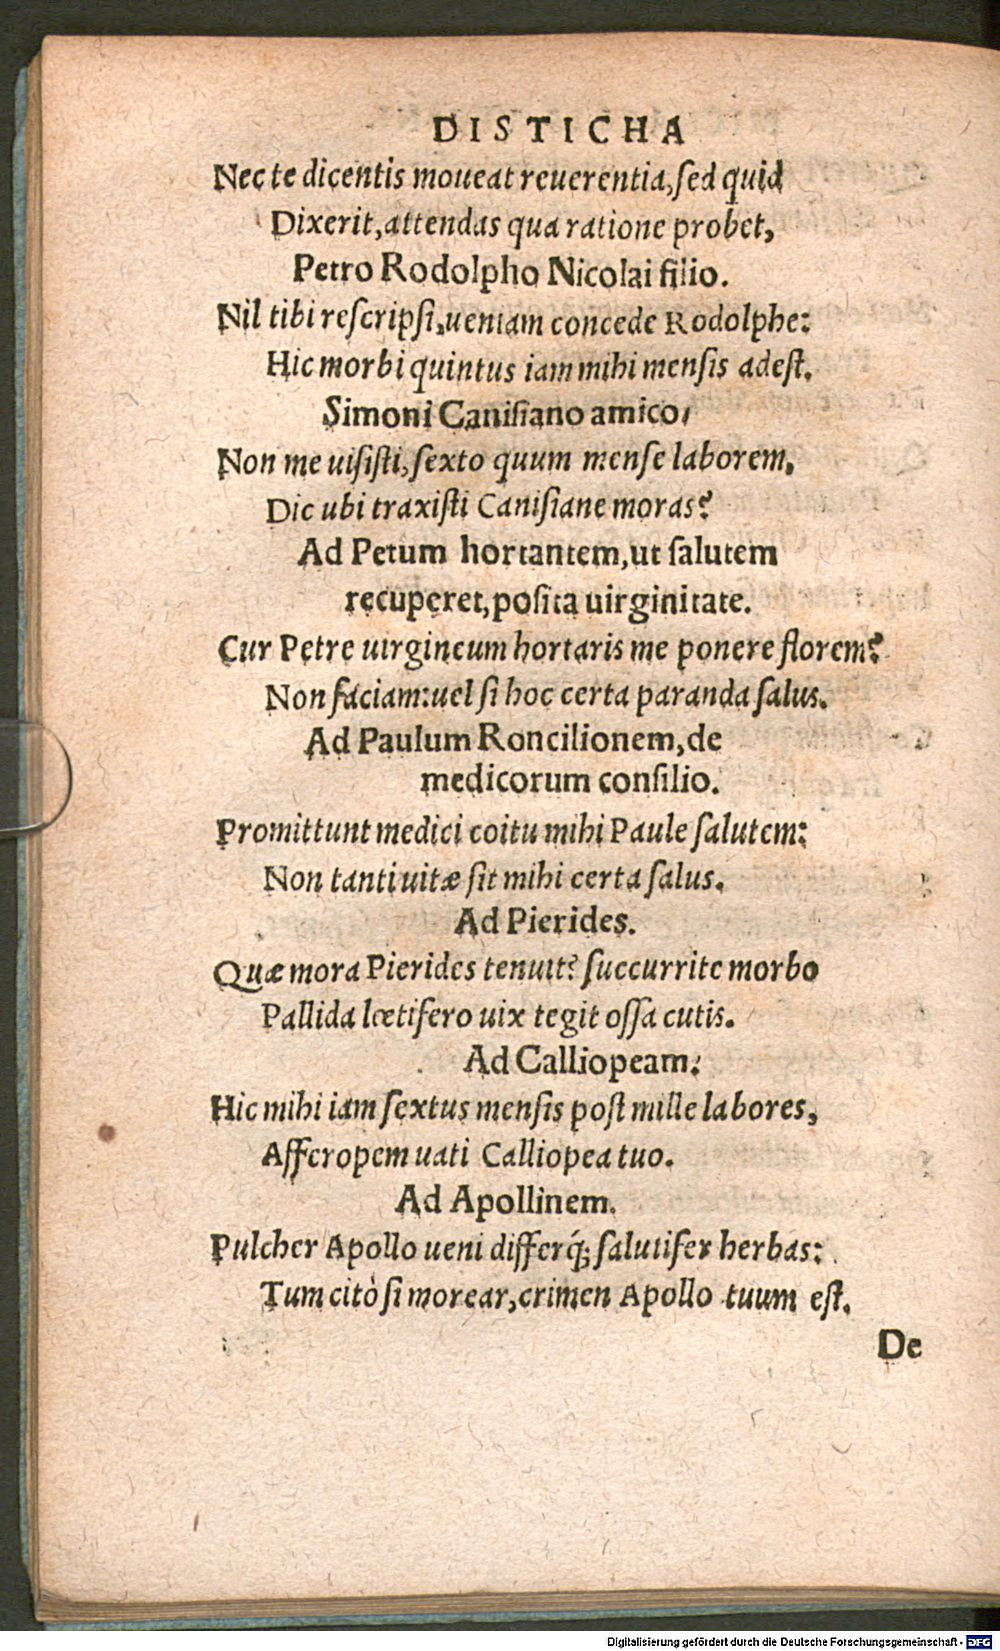 DISTICHA
Nec te dicentis moueat reuerentia, sed quid
Dixerit, attendas qua ratione probet,
Petro Rodolpho Nicolai filio.
Nil tibi rescripsi, ueniam concede Rodolphe:
Hic morbi quintus iam mihi mensis adest.
Simoni Canisiano amico,
Non me uisisti, sexto quum mense laborem,
Dic ubi traxisti Canisiane moras?
Ad Petum hortantem, ut salutem
recuperet, posita uirginitate.
Cur Petre uirgineum hortaris me ponere florem?
Non faciam: uel si hoc certa paranda salus.
Ad Paulum Roncilionem, de
medicorum consilio.
Promittunt medici coitu mihi Paule salutem:
Non tanti uitæ sit mihi certa salus.
Ad Pierides.
Quæ mora Pierides tenuit? succurrite morbo
Pallida lœtifero uix tegit ossa cutis.
Ad Calliopeam:
Hic mihi iam sextus mensis post mille labores,
Affer opem uati Calliopea tuo.
Ad Apollinem.
Pulcher Apollo ueni differq́; salutifer herbas:
Tum citò si morear, crimen Apollo tuum est.
De
Digitalisierung gefördert durch die Deutsche Forschungsgemeinschaft - DFG